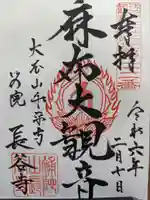 奉拝
令和六年
二月十日
麻布大観音
大本山永平寺
別院
長谷寺